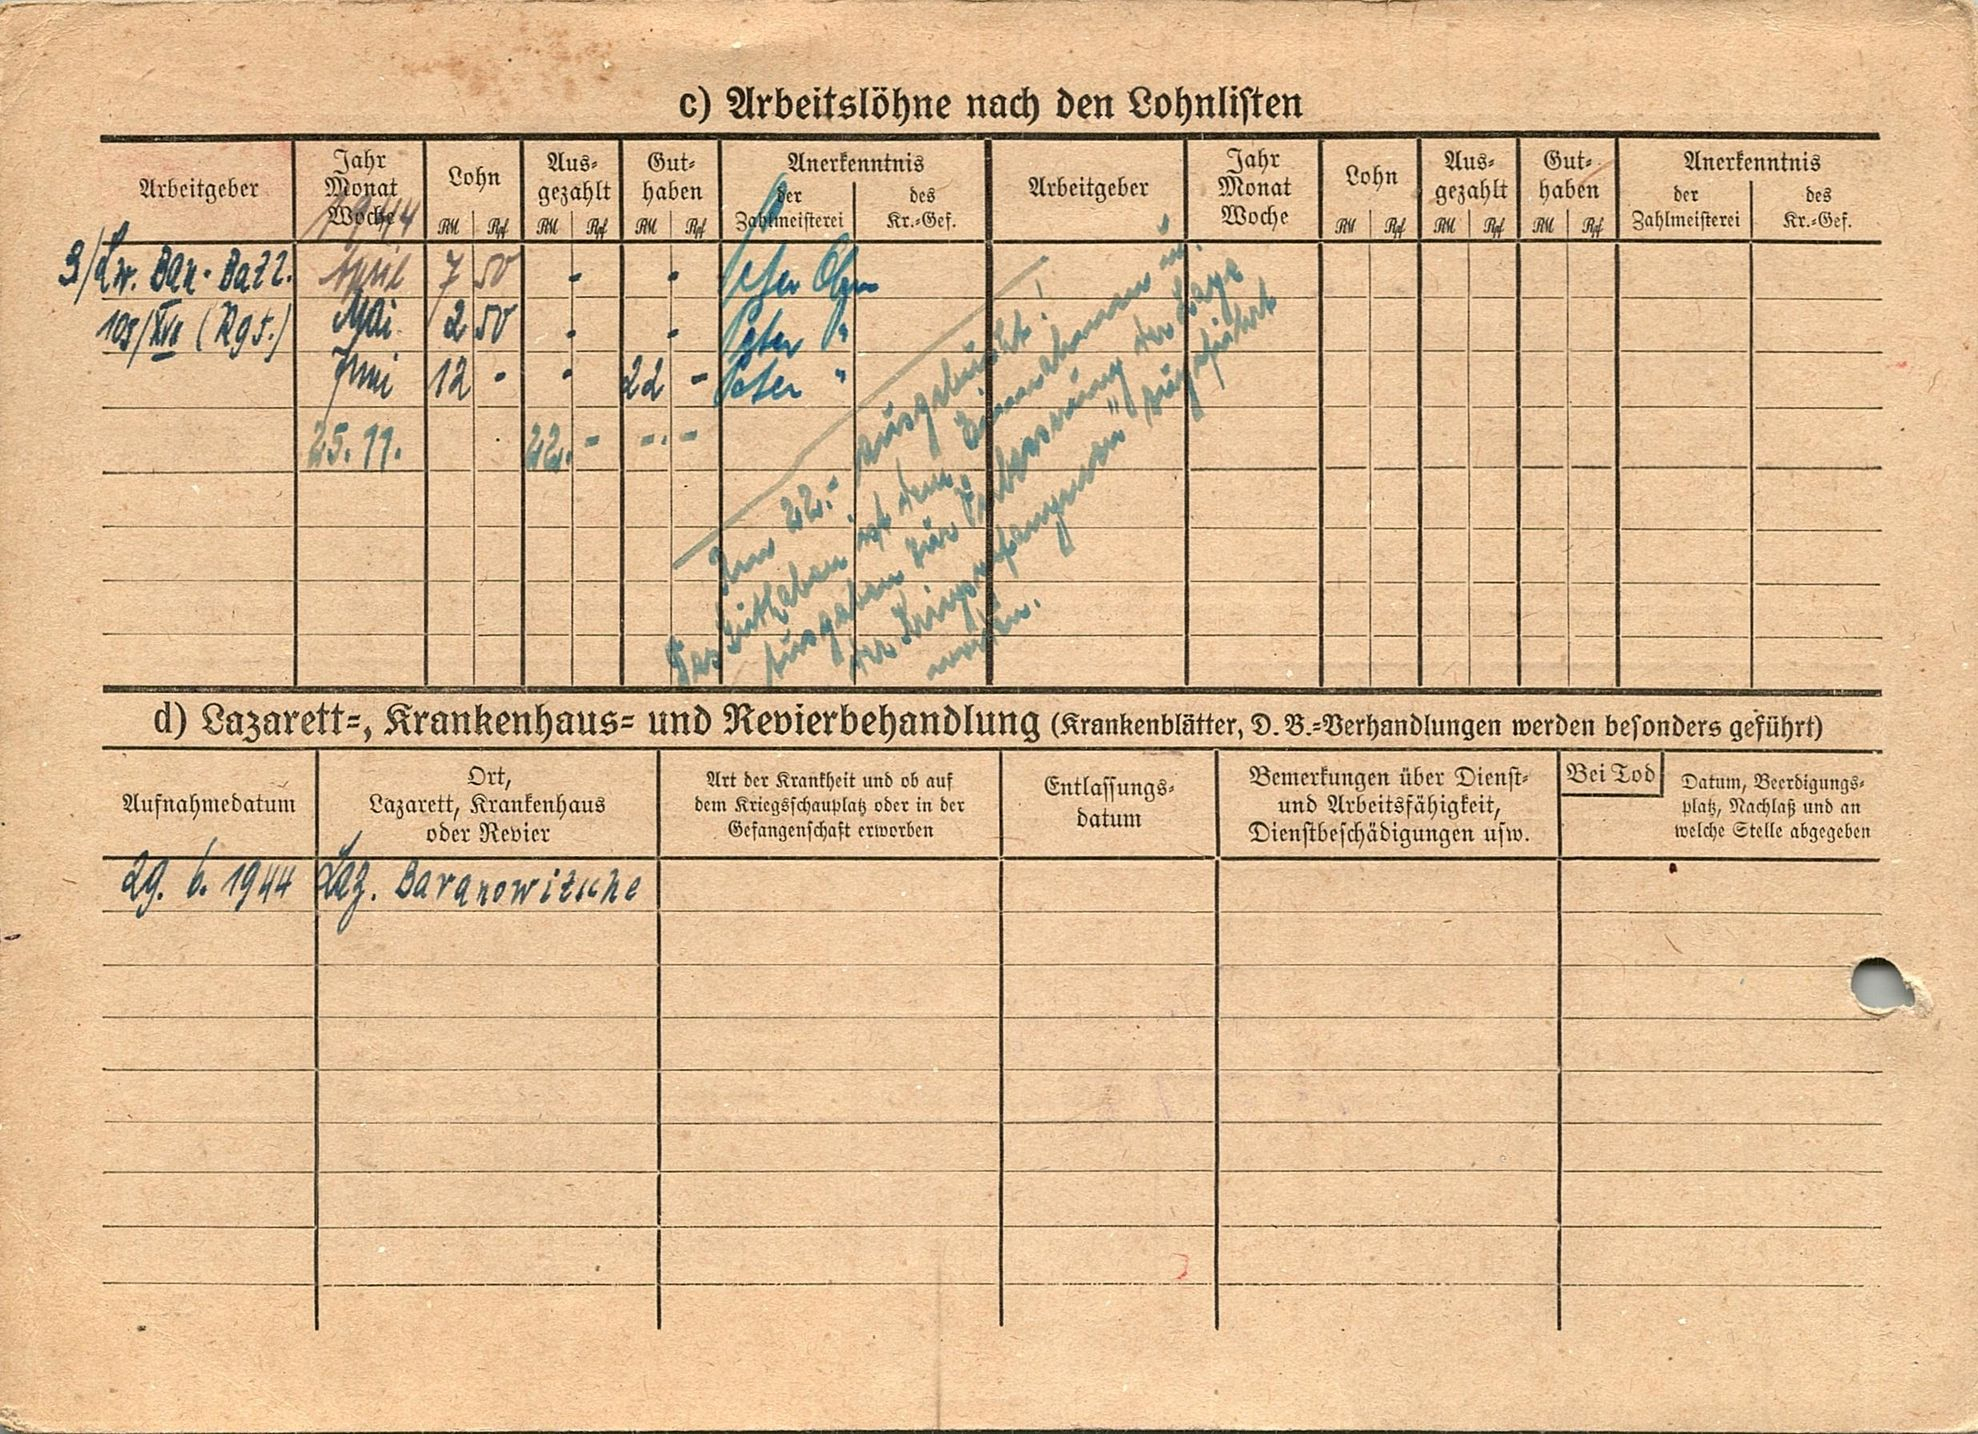 c) Arbeitslöhne nach den Lohnlisten
Arbeitgeber
Jahr
Monat
Woche
1944
Lohn
RM Rpf
Aus-
gezahlt
RM Rpf
Gut-
haben
RM Rpf
Anerkenntnis
der
Zahlmeisterei
des
Kr.-Gef.
Arbeitgeber
Jahr
Monat
Woche
Lohn
RM Rpf
Aus-
gezahlt
RM Rpf
Gut-
haben
RM Rpf
Anerkenntnis
der
Zahlmeisterei
des
Kr.-Gef.
3/Lw. Bau-Batl. April 7 50 - - Peter
103/XVII (Rgt.) Mai 2 50 - - Peter "
Juni 12 - - 22 - Peter "
25. 11. 22. - -.-
22.- ausgebucht!
Das Guthaben ist dem „Einnahmen u.
Ausgaben zur Verbesserung der Lage
der Kriegsgefangenen" zugeführt
worden.
d) Lazarett-, Krankenhaus- und Revierbehandlung (Krankenblätter, D. B.-Verhandlungen werden besonders geführt)
Aufnahmedatum
Ort,
Lazarett, Krankenhaus
oder Revier
Art der Krankheit und ob auf
dem Kriegsschauplatz oder in der
Gefangenschaft erworben
Entlassungs-
datum
Bemerkungen über Dienst-
und Arbeitsfähigkeit,
Dienstbeschädigungen usw.
Bei Tod
Datum, Beerdigungs-
platz, Nachlaß und an
welche Stelle abgegeben
29. 6. 1944 Laz. Baranowitsche